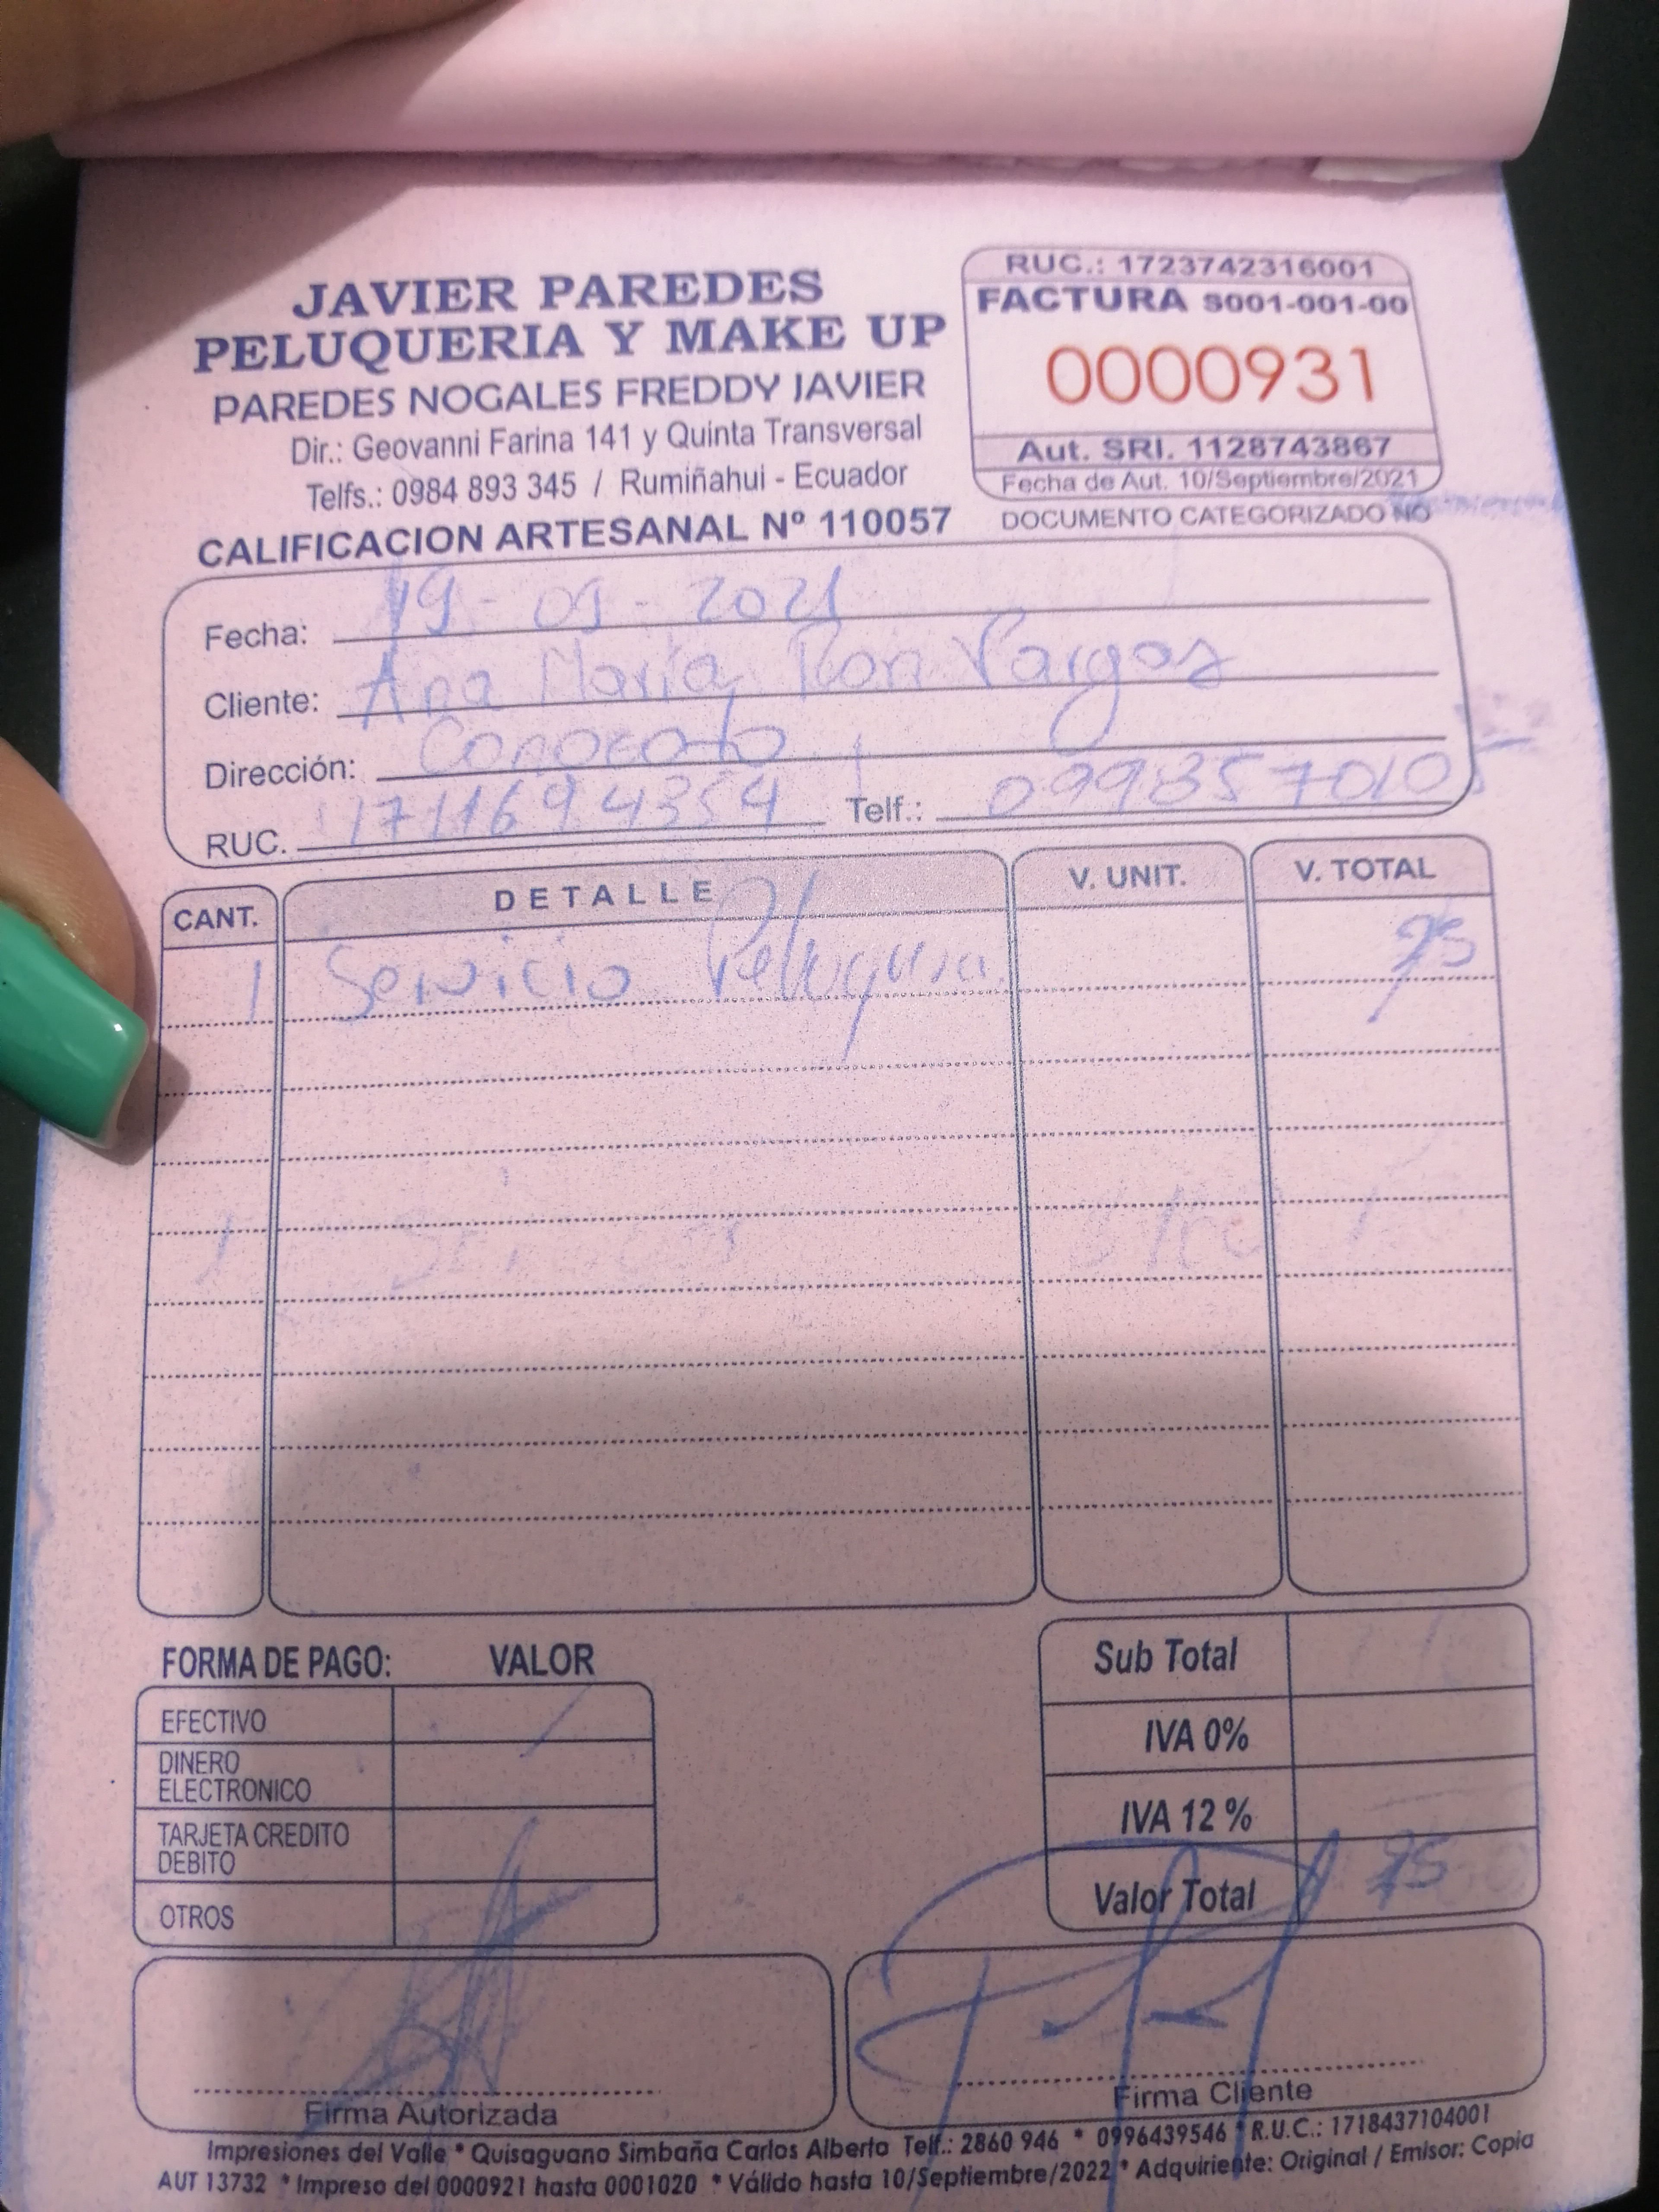 JAVIER PAREDES
PELUQUERIA Y MAKE UP
PAREDES NOGALES FREDDY JAVIER
Dir.: Geovanni Farina 141 y Quinta Transversal
Telfs.: 0984 893 345 / Rumiñahui - Ecuador
CALIFICACION ARTESANAL Nº 110057
RUC.: 1723742316001
FACTURA S001-001-00
0000931
Aut. SRI. 1128743867
Fecha de Aut. 10/Septiembre/2021
DOCUMENTO CATEGORIZADO NO
Fecha: 19-09-2021
Cliente: Ana María Ron Vargas
Dirección: Conocoto
RUC. 1711694354 Telf.: 0998357010
CANT. DETALLE V. UNIT. V. TOTAL
1 Servicio 75
FORMA DE PAGO: VALOR
EFECTIVO
DINERO ELECTRONICO
TARJETA CREDITO DEBITO
OTROS
Sub Total
IVA 0%
IVA 12 %
Valor Total 75
Firma Autorizada
Firma Cliente
Impresiones del Valle * Quisaguano Simbaña Carlos Alberto Telf.: 2860 946 * 0996439546 * R.U.C.: 1718437104001
AUT 13732 * Impreso del 0000921 hasta 0001020 * Válido hasta 10/Septiembre/2022 * Adquiriente: Original / Emisor: Copia